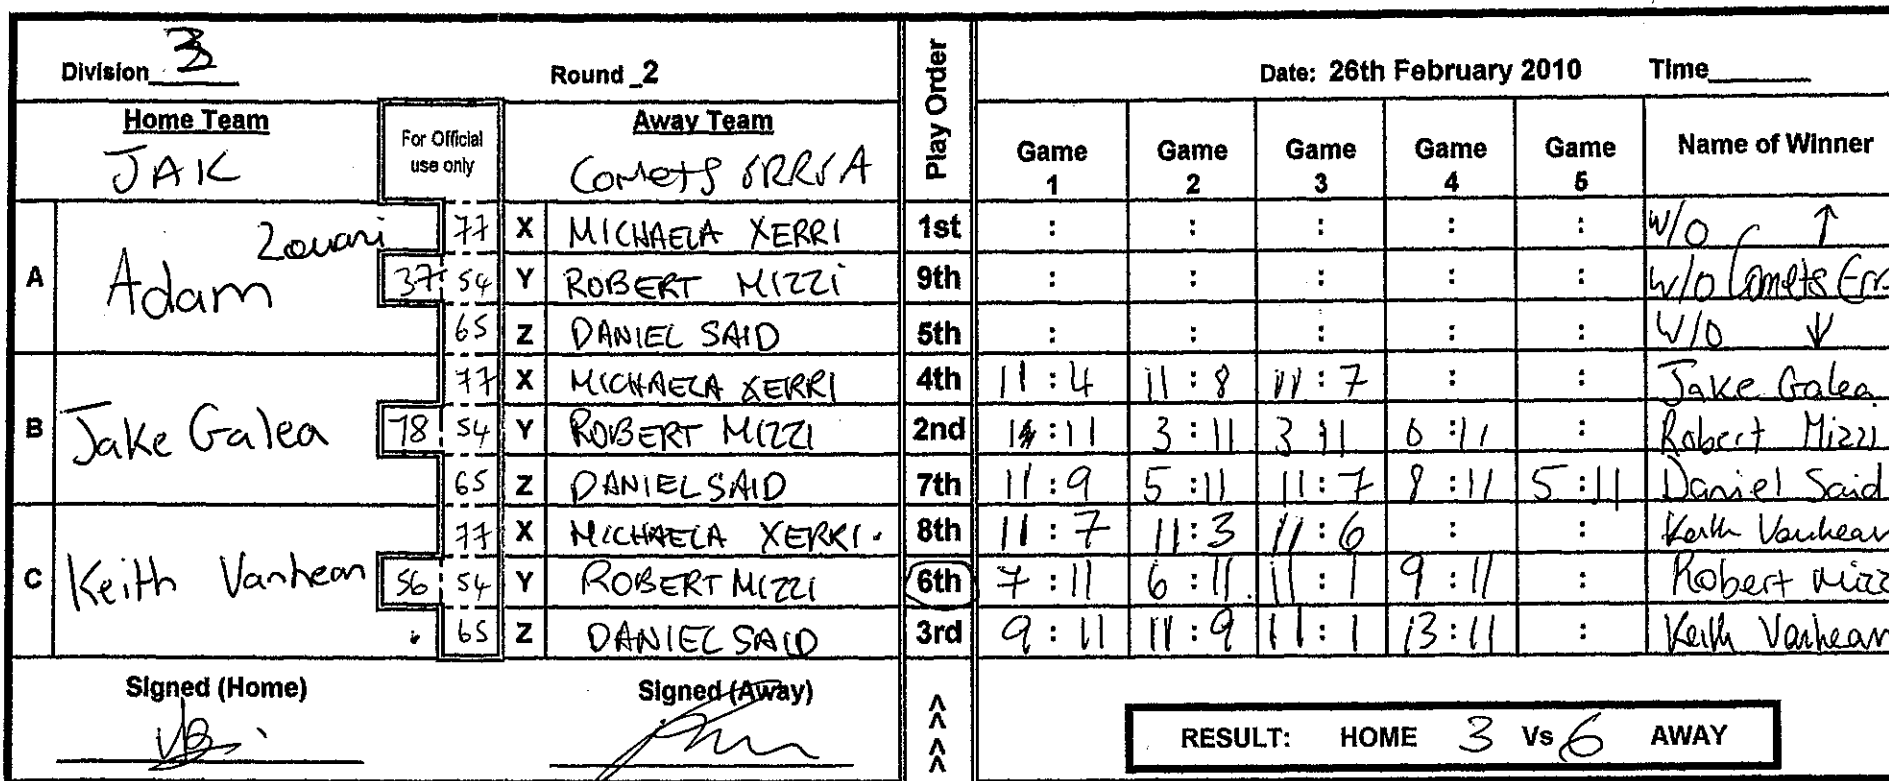 Division 3 Round 2 Date: 26th February 2010 Time
Home Team For Official use only Away Team Play Order Game 1 Game 2 Game 3 Game 4 Game 5 Name of Winner
JAK Comets ERRSA
A Adam Zouari 37
77 X MICHAELA XERRI 1st : : : : : W/O ↑
54 Y ROBERT MIZZI 9th : : : : : W/O Comets Err
65 Z DANIEL SAID 5th : : : : : W/O ↓
B Jake Galea 78
77 X MICHAELA XERRI 4th 11:4 11:8 11:7 : : Jake Galea
54 Y ROBERT MIZZI 2nd :11 3:11 3:11 6:11 : Robert Mizzi
65 Z DANIEL SAID 7th 11:9 5:11 11:7 8:11 5:11 Daniel Said
C Keith Vanhear 56
77 X MICHAELA XERRI. 8th 11:7 11:3 11:6 : : Keith Vanhear
54 Y ROBERT MIZZI 6th 7:11 6:11 11:1 9:11 : Robert Mizz
65 Z DANIEL SAID 3rd 9:11 11:9 11:1 13:11 : Keith Vanhear
Signed (Home) Signed (Away) >>>>
RESULT: HOME 3 Vs 6 AWAY